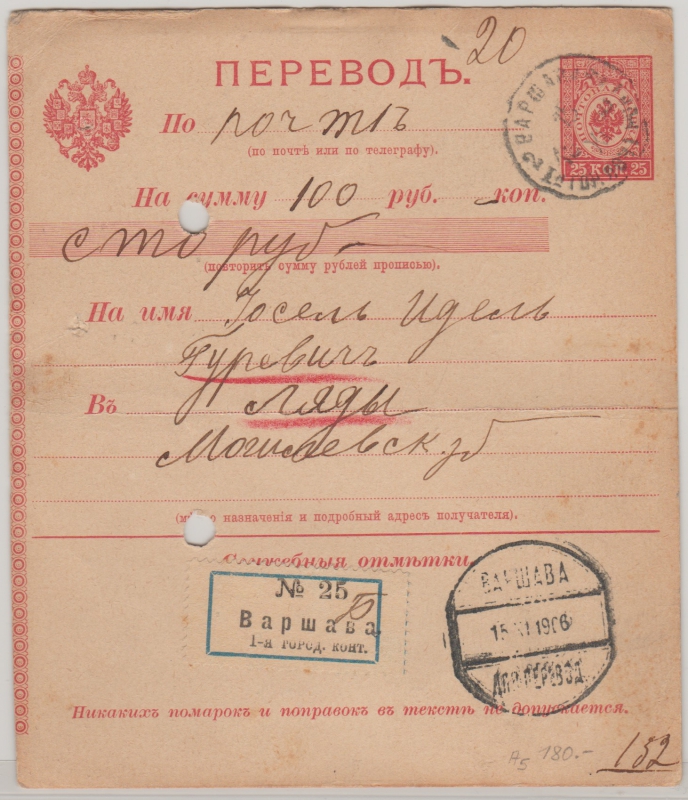 20
ПЕРЕВОДЪ.
По почтѣ
(по почтѣ или по телеграфу).
25 КОП. 25
На сумму 100 руб. — коп.
сто руб
(повторить сумму рублей прописью).
На имя Іосель Идель
Гуревичъ
Въ Ляды
Могилевск. губ
(мѣсто назначенія и подробный адресъ получателя).
Служебныя отмѣтки
№ 25
Варшава
1-я город. конт.
ВАРШАВА
15 XI 1906
ДЛЯ ПЕРЕВОД.
Никакихъ помарокъ и поправокъ въ текстѣ не допускается.
A5 180.-
152